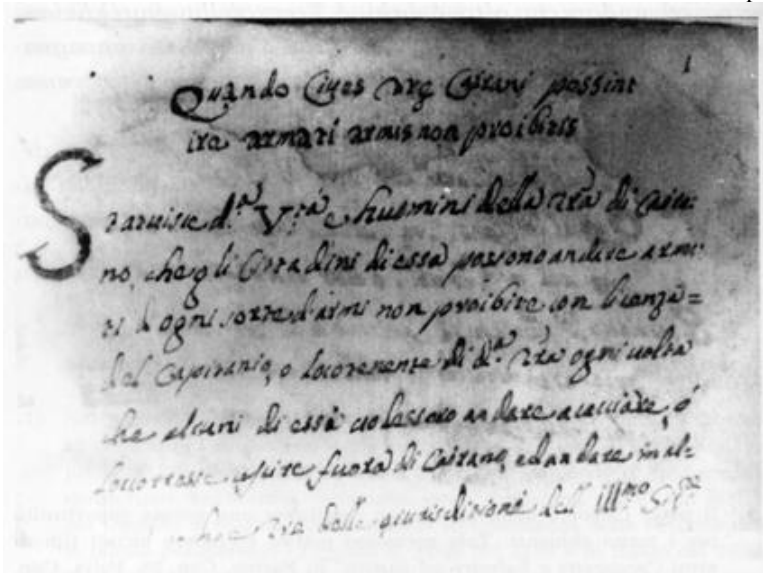 1
Quando Cives Trę Cairani possint
ire armari armis non proibitis
Statuisce d.ᵃ V.ᵗᵃ e huomini della Trà di Cairà:
no, che gli Cittadini di essa possono andare arma:
ti d'ogni sorte d'armi non proibite con licenza=
del Capitanio, o locotenente di d.ᵃ Trà ogni volta
che alcuni di essi volessero andare a cacciare, ó
uscire fuora di Cairano, ed andare in al:
Tra della giurisdizione dell' Ill.ᵐᵒ